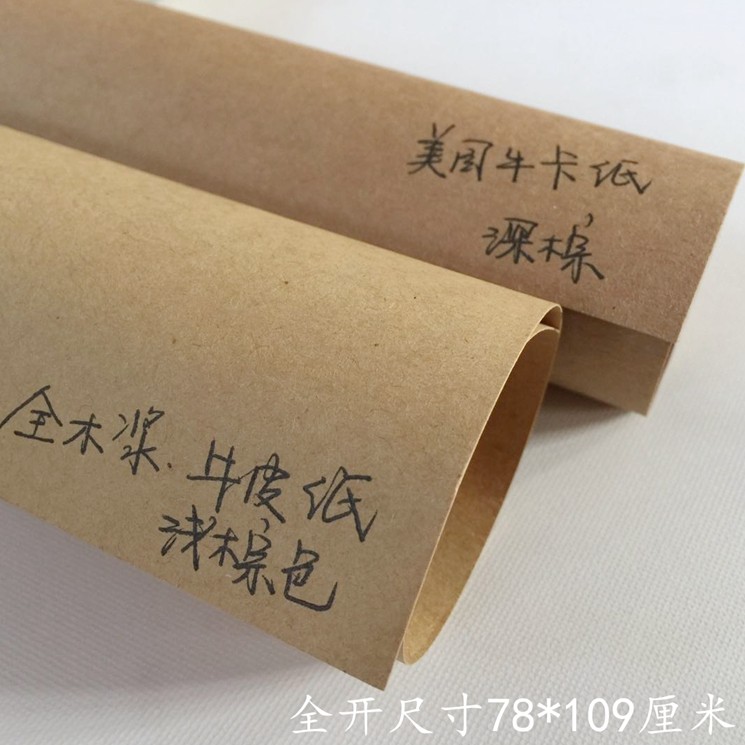 美国牛卡纸
深棕
全木浆.牛皮纸
浅棕色
全开尺寸78*109厘米